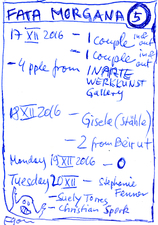 FATA MORGANA 5
17 XII 2016 - 1 couple in & out
- 1 couple in & out
- 4 pple from INARTE
WERKLUNST
Gallery
18 XII 2016
- Gisele (Stähle)
- 2 from Beirut
Monday 19 XII 2016 - 0
Tuesday 20 XII - Stephanie
Fenner
- Suely Torres
- Christian Spork